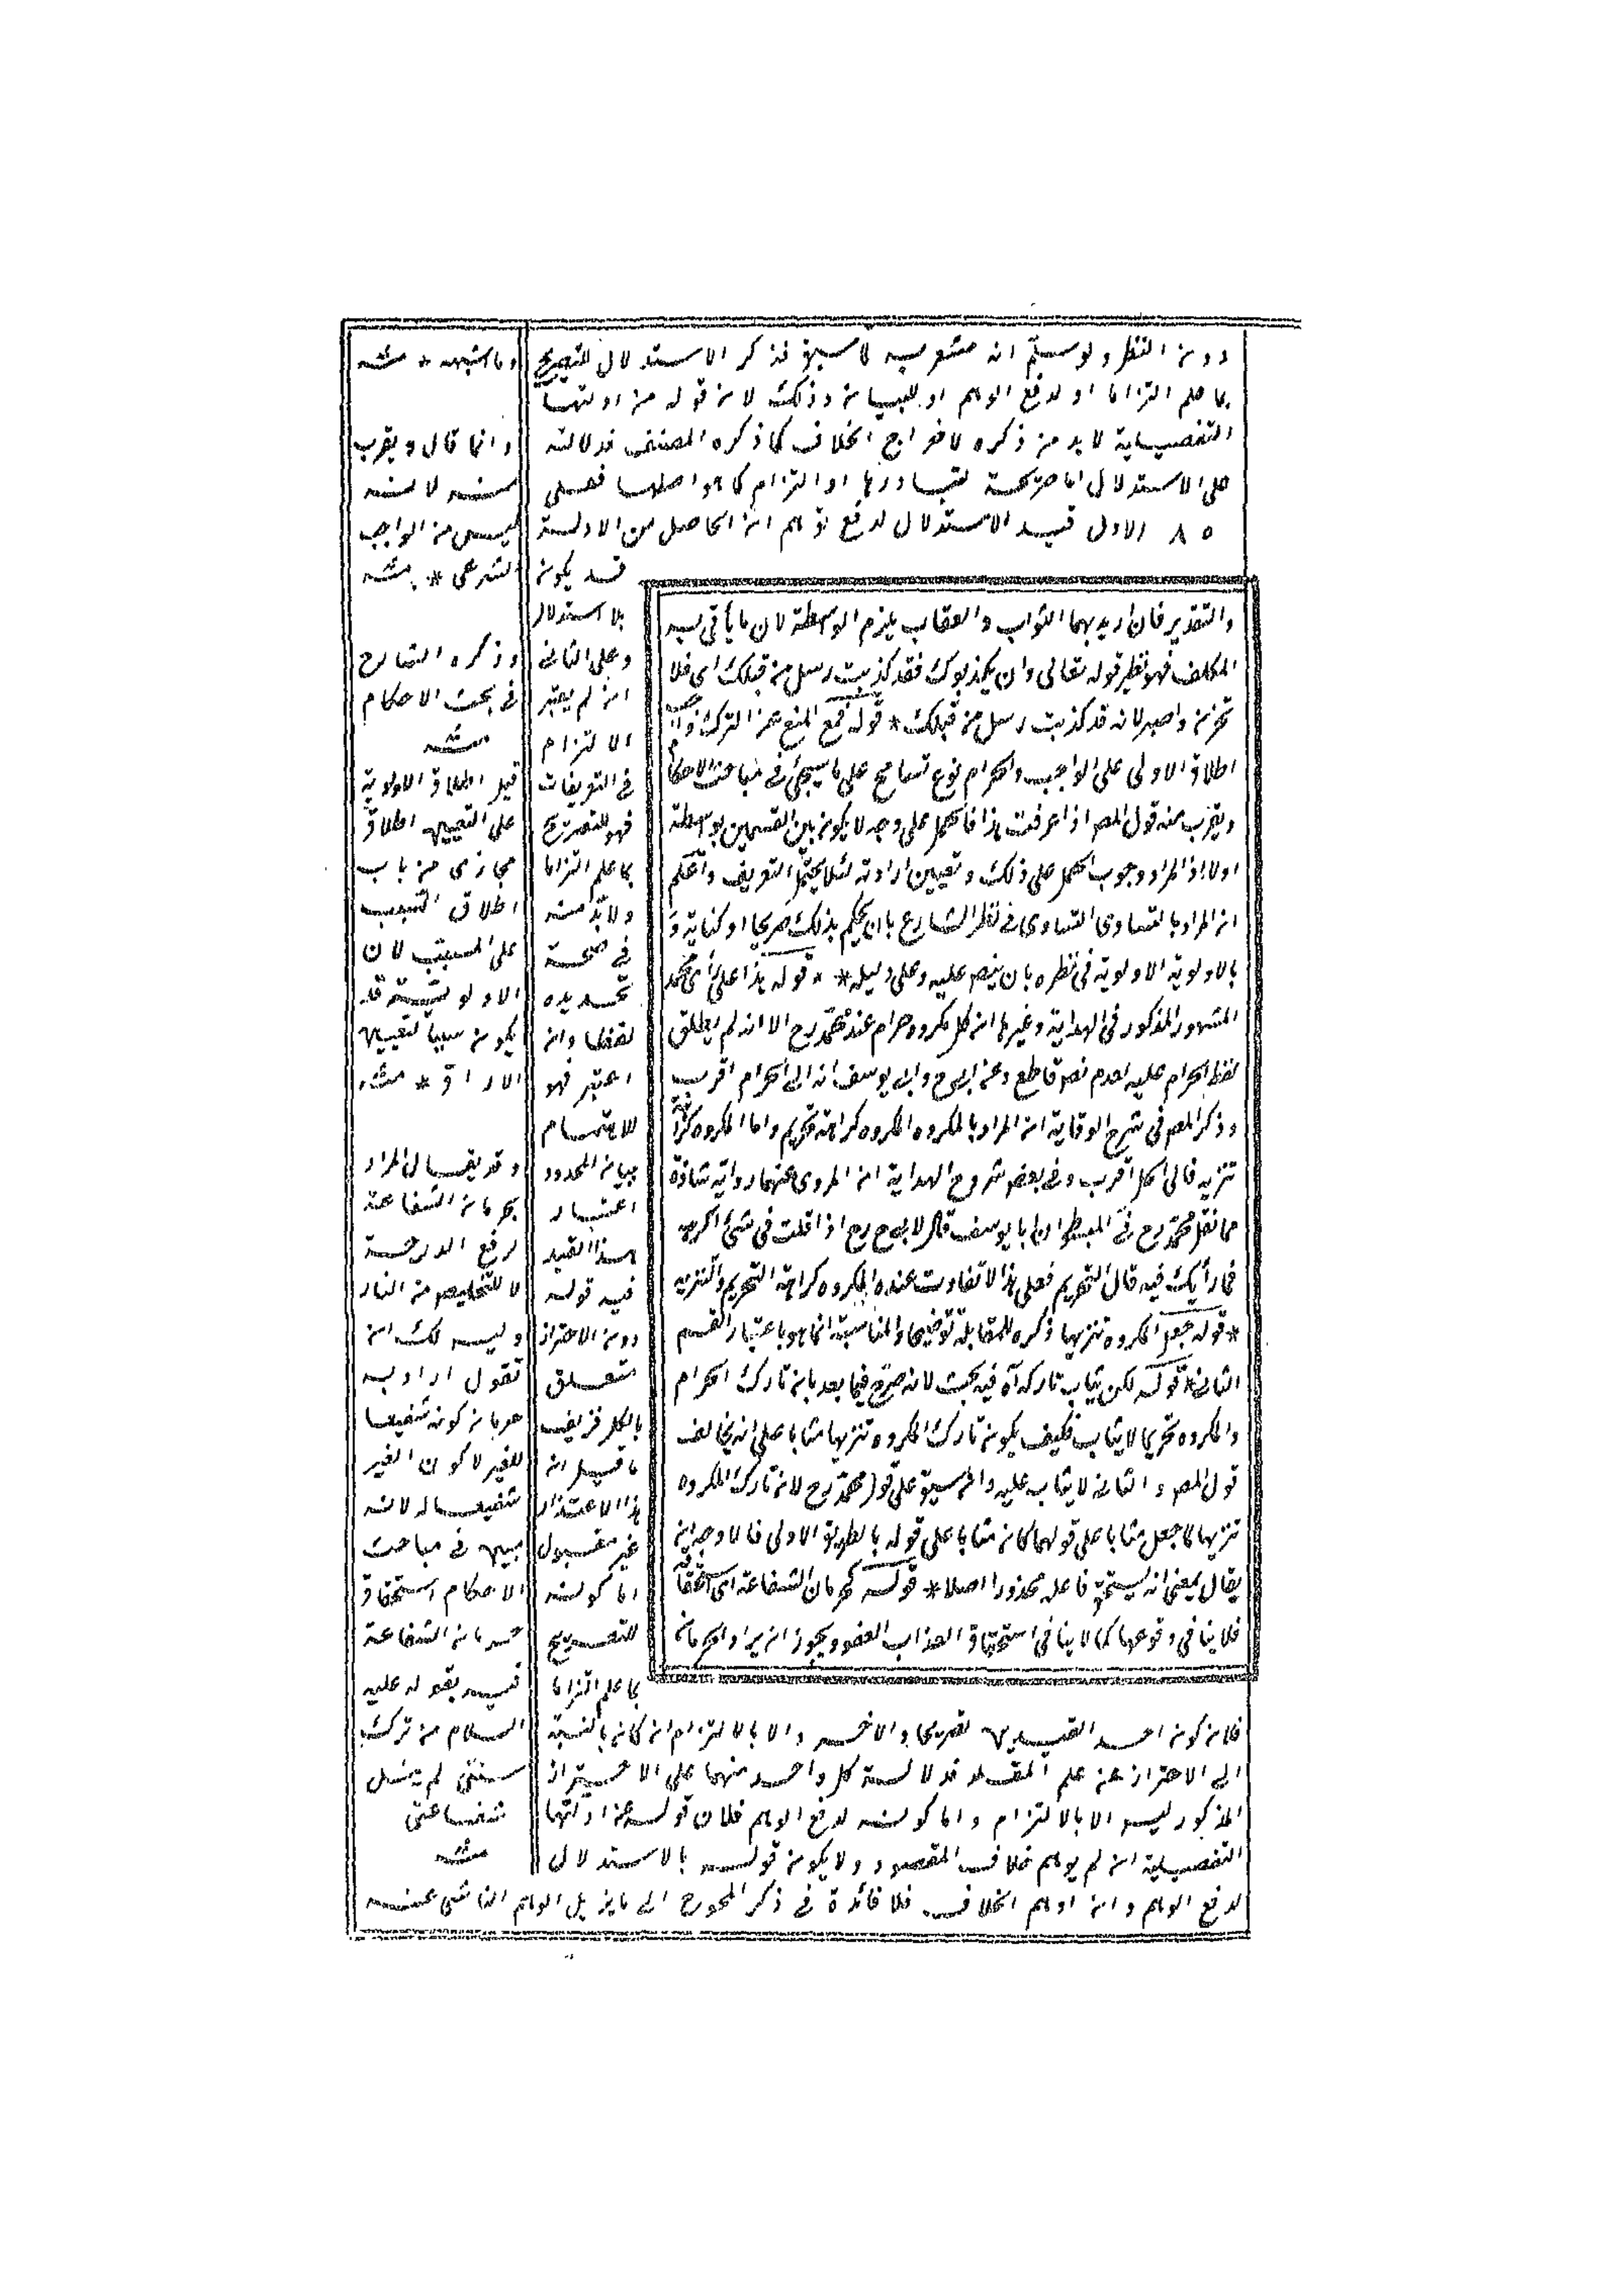 دون النظر ولو سلم انه مشعر به لا سبق فذكر الاستدلال للتصريح
بما علم التزاما او لدفع الوهم او للبيان وذلك لان قوله من ادلتها
التفصيلية لا بد من ذكره لاخراج الخلاف كما ذكره المصنف فدلالته
على الاستدلال اما صريحة لتبادرها او التزام كما هو اصلها فعلى
٨٥ الاول قيد الاستدلال لدفع توهم ان الحاصل من الادلة
قد يكون
بلا استدلال
وعلى الثاني
ان لم يعتبر
الالتزام
في التعريفات
فهو للتصريح
بما علم التزاما
ولا بد منه
في صحة
تحديده
لفظا وان
اعتبر فهو
للاهتمام
ببيان المحدود
اعتبار
هذا القيد
فيه قوله
دون الاحتراز
متعلق
بالكل فزيف
ما قيل ان
هذا الاعتذار
غير مقبول
اما كونه
للتصريح
بما علم التزاما
فلان كون احد القيدين تصريحا والاخر والا بالالتزام ان كان بالنسبة
الى الاحتراز عن علم المقلد فدلالة كل واحد منهما على الاحتراز
المذكور ليس الا بالالتزام واما كونه لدفع الوهم فلان قوله عن ادلتها
التفصيلية ان لم يوهم خلاف المقصود ولا يكون قوله بالاستدلال
لدفع الوهم وان اوهم الخلاف فلا فائدة في ذكر المحوج الى ما يزيل الوهم الناشي عنه
والتقدير فان اريد بهما الثواب والعقاب يلزم الواسطة لان ما يأتي به
المكلف فهو نظير قوله تعالى وان يكذبوك فقد كذبت رسل من قبلك اى فلا
تحزن واصبر لانه قد كذبت رسل من قبلك * قوله فمع المنع عن الترك واجب
اطلاق الاولى على الواجب والحرام نوع تسامح على ما سيجئ في مباحث الاحكام
ويقرب منه قول المص اذا عرفت هذا فالحمل على وجه لا يكون بين القسمين بواسطة
اولا اذ المراد وجوب الحمل على ذلك وتعيين ارادته لئلا يختل التعريف واعلم
ان المراد بالتساوى التساوى في نظر الشارع بان يحكم بذلك صريحا او كناية و
بالاولوية الاولوية في نظره بان ينص عليه وعلى دليله * قوله هذا على رأى محمد
المشهور المذكور في الهداية وغيرها ان كل مكروه حرام عند محمد رح الا انه لم يطلق
لفظ الحرام عليه لعدم نص قاطع وعن ابى ح وابى يوسف انه الى الحرام اقرب
وذكر المص في شرح الوقاية ان المراد بالمكروه المكروه كراهة تحريم واما المكروه كراهة
تنزيه فالى الحل اقرب وفي بعض شروح الهداية ان المروى عنهما رواية شاذة
مما نقل محمد رح في المبسوط ان ابا يوسف قال لابى ح رح اذا قلت في شئ اكرهه
فما رأيك فيه قال التحريم فعلى هذا لا تفاوت عنده المكروه كراهة التحريم والتنزيه
* قوله جعل المكروه تنزيها ذكره للمقابلة توضيحا والمناسبة انما هو باعتبار القسم
الثانى * قوله لكن يثاب تاركه آه فيه بحث لانه صرح فيما بعد بان تارك الحرام
والمكروه تحريما لا يثاب فكيف يكون تارك المكروه تنزيها مثابا على انه يخالف
قول المص والثانى لا يثاب عليه والمسبوق على قول محمد رح لان تارك المكروه
تنزيها لما جعل مثابا على قولهما كان مثابا على قوله بالطريق الاولى فالاوجه ان
يقال بمعنى انه ليستحق فاعله محذورا اصلا * قوله كحرمان الشفاعة اى استحقاقا
فلا ينافي وقوعها كما لا ينافي استحقاق العذاب العفو ويجوز ان يراد الحرمان
وما اشبهه * منه
وانما قال ويقرب
منه لانه
ليس من الواجب
الشرعى * منه
وذكره الشارح
في بحث الاحكام
منه
قيل اطلاق الاولوية
على التعيين اطلاق
مجازى من باب
اطلاق السبب
على المسبب لان
الاولوية قد
يكون سببا لتعيين
منه
وقد يقال المراد
بحرمان الشفاعة
لرفع الدرجة
لا للتخليص من النار
وليس لك ان
تقول اراد به
حرمان كونه شفيعا
للغير لا كون الغير
شفيعا له لانه
بين في مباحث
الاحكام استحقاق
حرمان الشفاعة
فيه بقوله عليه
السلام من ترك
سنتى لم ينل
شفاعتى
منه